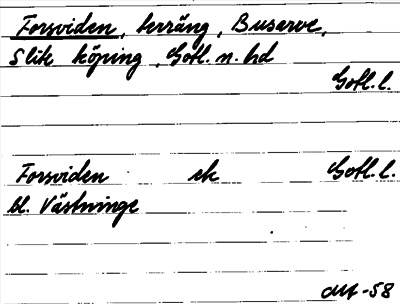 Forsviden, terräng, Buserve,
Slite köping, Gotl. n. hd
Gotl. l.
Forsviden ek Gotl. l.
bl. Västninge
-58